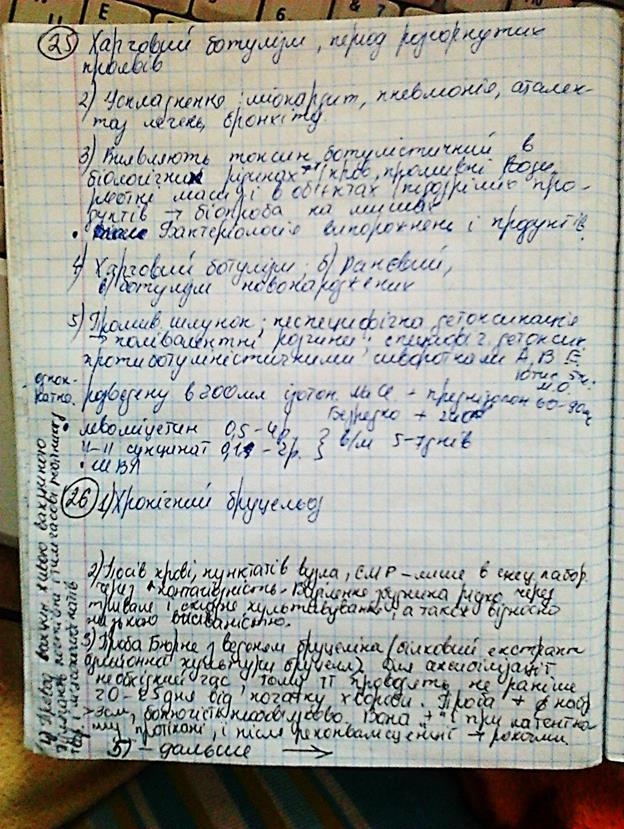 25 Харчовий ботулізм, період розгорнутих
проявів
2) Ускладнення: міокардит, пневмонія, ателек-
таз легень, бронхіту
3) Виявляють токсин ботулістичний в
біологічних рідинах (кров, промивні води,
рвотні маси) і в об'єктах (підозрілих про-
дуктів → біопроба на мишах
Бактеріологія випорожнень і продуктів.
4) Харчовий ботулізм; б) Раневий,
в) ботулізм новонароджених
5) Промив. шлунок; неспецифічна детоксикація
→ полівалентні розчини; специфіч. детоксик.
протиботулістичними сироватками А, В, Е
10тис 5т.
М.О.
однок-
ратно.
розведену в 200мл ізотон. NaCl + преднізолон 60-90мг
Безредко +
• левоміцетин 0,5 - 4р.
сукцинат - 2р. } в/м 5-7 днів
• ШВЛ
26 1) Хронічний бруцельоз
2) Посів крові, пунктатів вузла, СМР - лише в спец. лабор.
через ↑ контагіозність. Виділення збудника рідко через
тривале і складне культивування, а також відносно
низькою висіваністю.
3) Проба Бюрне з введеном бруцеліна (білковий екстракт
бульйонної культури бруцел). Для алергізації
необхідний час, тому її проводять не раніше
20-25 дня від початку хвороби. Проба + є набр
> 3см, болючість необов'язково. Вона "+" і при латентно-
му протіканні, і після реконвалесценції → роками.
5) - дальше →
4) Провод. вакцин. живою вакциною